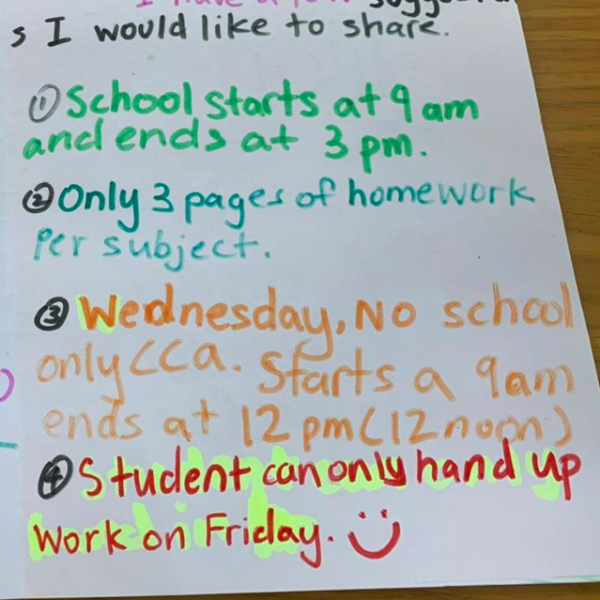 I have a few sugge
s I would like to share.
① School starts at 9 am
and ends at 3 pm.
② Only 3 pages of homework
Per subject.
③ Wednesday, No school
only CCa. Starts a 9am
ends at 12 pm (12 noon)
④ Student can only hand up
Work on Friday. :)